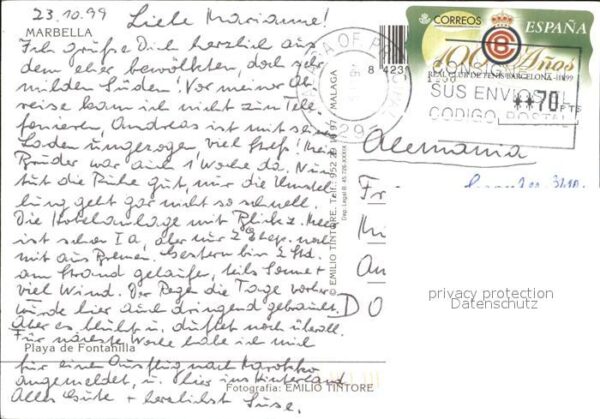 23.10.99 Liebe Marianne!
MARBELLA
Ich grüße Dich herzlich aus
dem eher bewölkten doch sehr
milden Süden! Vor meiner Ab
reise kam ich nicht zum Tele
fonieren, Andreas ist mit sein
Laden umgezogen, viel Stress! Mein
Bruder war auch 1 Woche da. Nun
tut die Ruhe gut, nur die Umstel
lung geht gar nicht so schnell.
Die Hotelanlage mit Blick z. Meer
ist schon Ia, aber nur 2 noch
mit aus Bremen. Gestern bin 2 Std.
am Strand gelaufen, teils Sonne +
viel Wind. Der Regen die Tage vorher
wurde hier auch dringend gebraucht.
Aber es blüht u. duftet noch überall.
Für nächste Woche habe ich mich
Playa de Fontanilla
für einen Ausflug nach Marokko
angemeldet, u. hier ins Hinterland
Alles Gute + herzlichst Suse.
Fotografía: EMILIO TINTORE
© EMILIO TINTORE. Telf.: 952 29 97 / MALAGA
Dep. Legal B. 45.726-XXXIX
8 423
CORREOS ESPAÑA
100 Años
REAL CLUB DE TENIS BARCELONA - 1899
1998
SUS ENVIOS
CODIGO POSTAL
**70 PTS
Alemania
Fr
An
D
privacy protection
Datenschutz